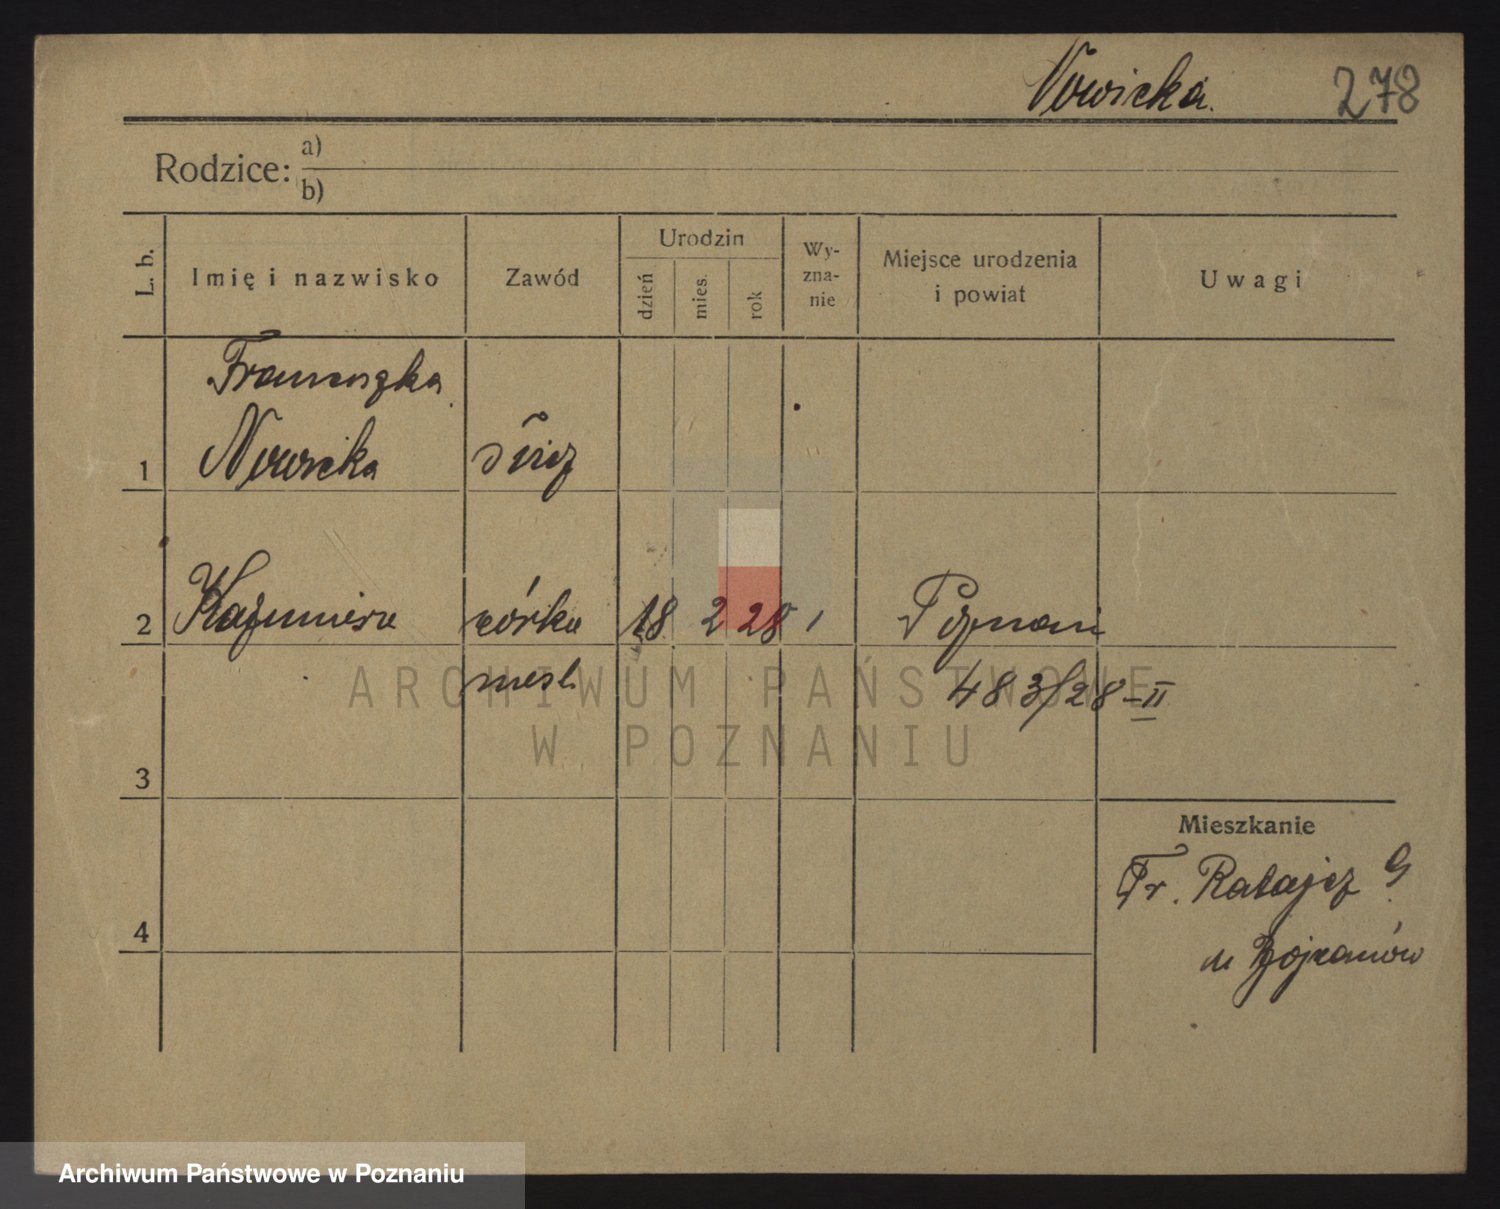 Nowicka. 278
Rodzice: a)
b)
L. b. Imię i nazwisko Zawód Urodzin dzień mies. rok Wy-zna-nie Miejsce urodzenia i powiat Uwagi
Franciszka
1 Nowicka służ
2 Kazimiera córka 18 2 28 Poznań
nieśl. 483/28-II
3
Mieszkanie
Fr. Ratajcz
4
ARCHIWUM PAŃSTWOWE
W POZNANIU
Archiwum Państwowe w Poznaniu